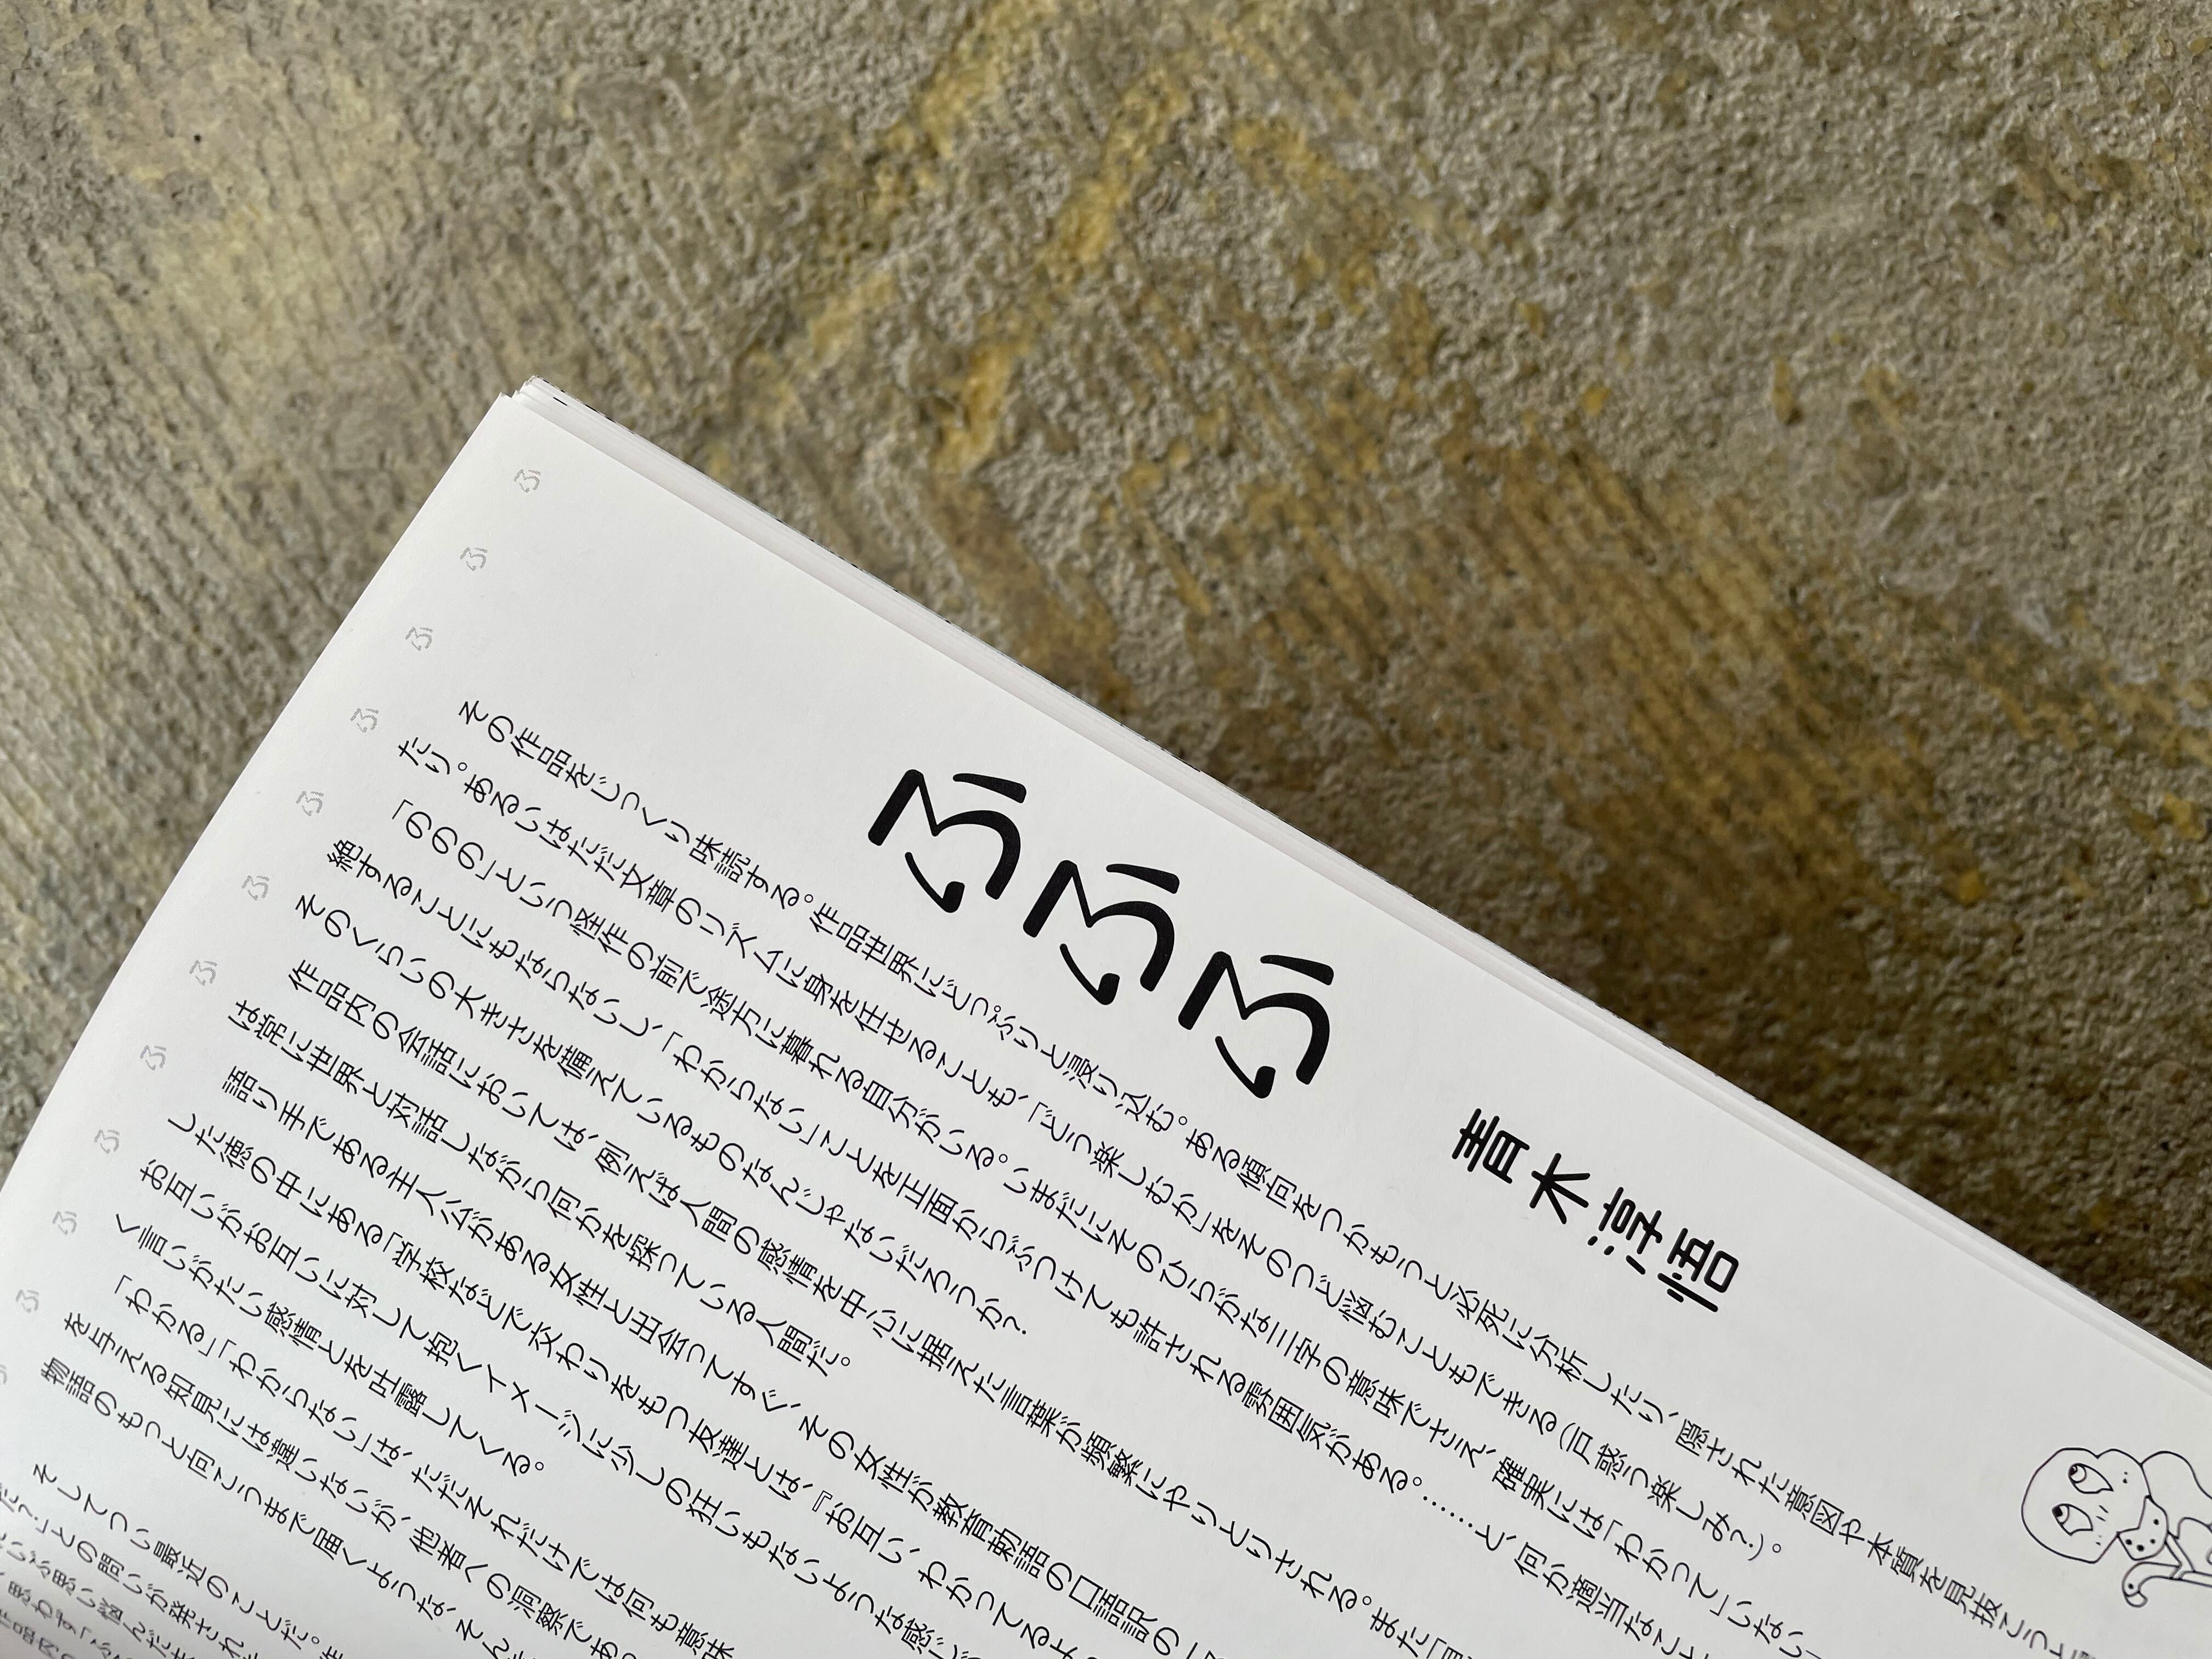 ふふふ
青木淳悟
その作品をじっくり味読する。作品世界にどっぷりと浸り込む。ある傾向をつかもうと必死に分析したり、隠された意図や本質を見抜こうと
たり。あるいはただ文章のリズムに身を任せることも、「どう楽しむか」をそのつど悩むこともできる(戸惑う楽しみ?)。
「ののの」という怪作の前で途方に暮れる自分がいる。いまだにそのひらがな三字の意味でさえ、確実には「わかって」いない
絶することにもならないし、「わからない」ことを正面からぶつけても許される雰囲気がある。……と、何か適当なこと
そのくらいの大きさを備えているものなんじゃないだろうか?
作品内の会話においては、例えば人間の感情を中心に据えた言葉が頻繁にやりとりされる。また「
は常に世界と対話しながら何かを探っている人間だ。
語り手である主人公がある女性と出会ってすぐ、その女性が教育勅語の口語訳の一
した徳の中にある「学校などで交わりをもつ友達とは、『お互い、わかってるよ
お互いがお互いに対して抱くイメージに少しの狂いもないような感じ
く言いがたい感情とを吐露してくる。
「わかる」「わからない」は、ただそれだけでは何も意味
を与える知見には違いないが、他者への洞察であ
物語のもっと向こうまで届くような、そん
そしてつい最近のことだ。
だ?」との問いが発され
ふ
ふ
ふ
ふ
ふ
ふ
ふ
ふ
ふ
ふ
ふ